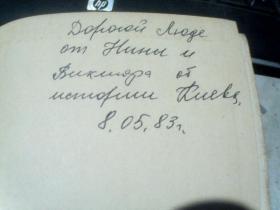 Дорогой Люде
от Нины и
Виктора об
истории Киева,
8.05.83г.